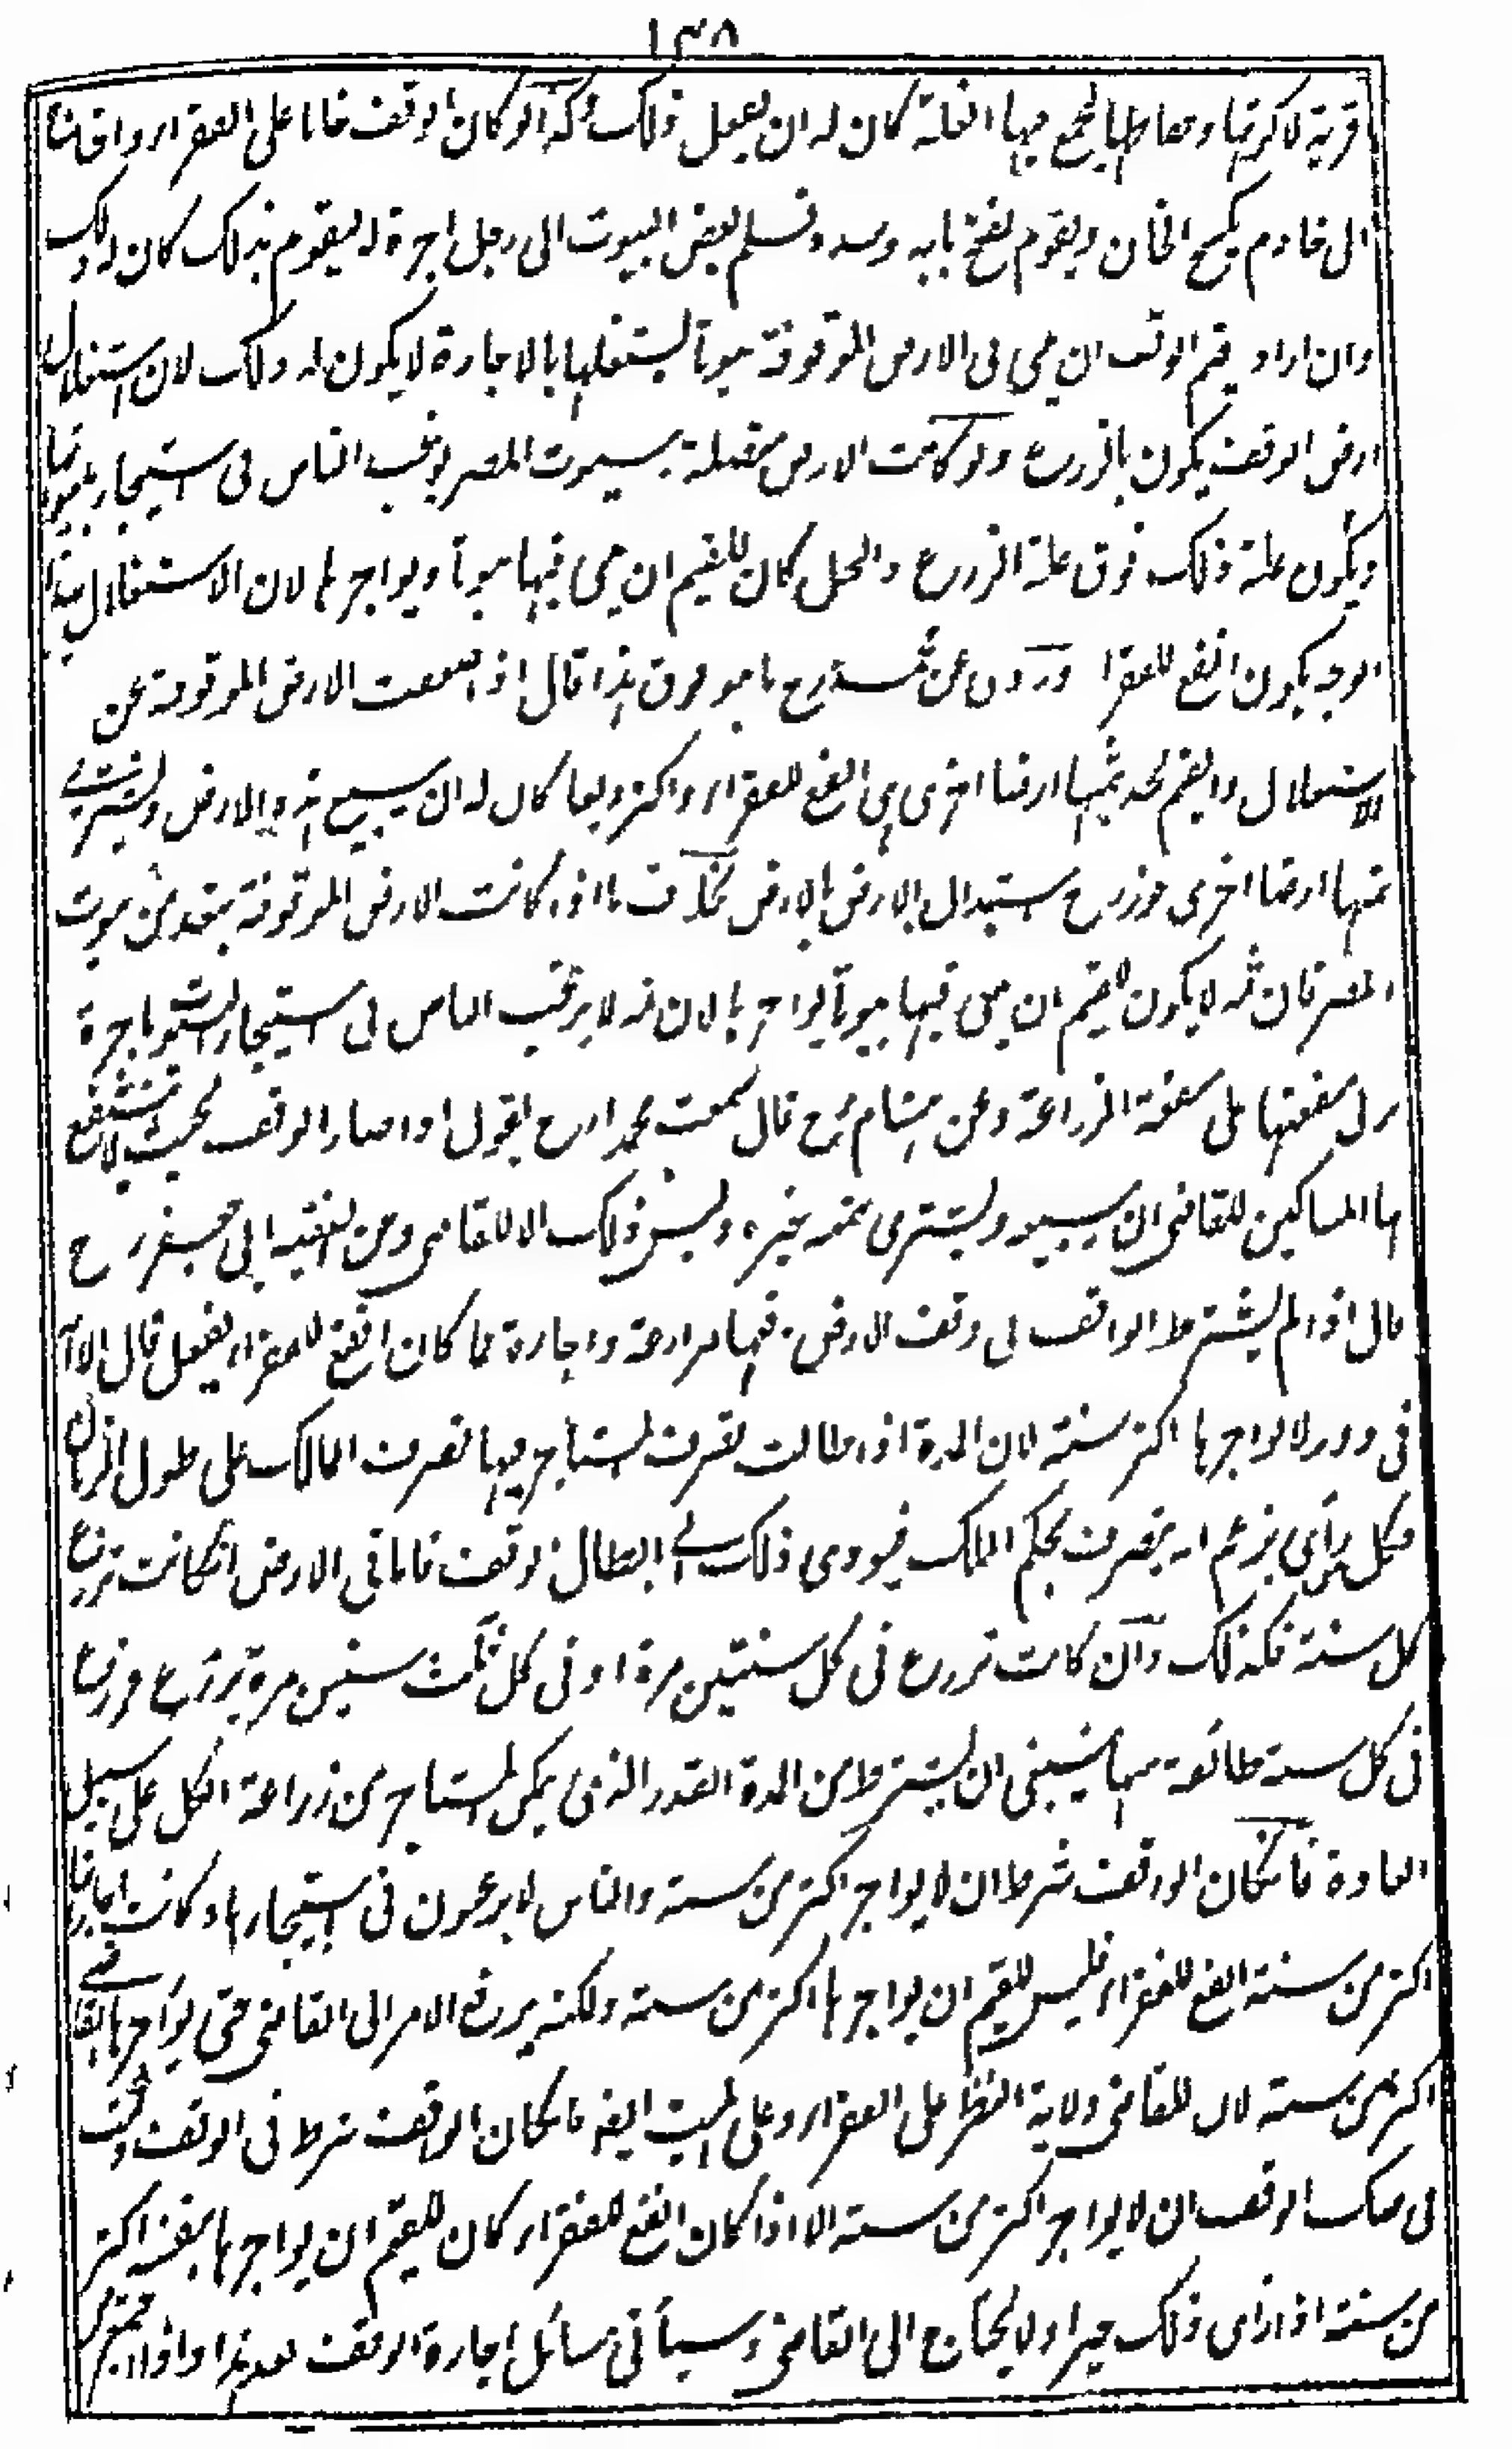 ١٣٨
قرية لاكرتها وحفاظها ليجمع فيها الغلة كان له ان يفعل ذلك وكذا لو كان الوقف خانا على الفقراء واحتاج
الى خادم يكسح الخان ويقوم بفتح بابه وسده فسلم بعض البيوت الى رجل اجرة له ليقوم بذلك كان له ذلك
وان اراد قيم الوقف ان يبنى فى الارض الموقوفة بيوتا ليستغلها بالاجارة لا يكون له ذلك لان استغلال
ارض الوقف يكون بالزرع ولو كانت الارض متصلة ببيوت المصر يرغب الناس فى استيجار بيوتها
ويكون غلة ذلك فوق غلة الزرع والنخل كان للقيم ان يبنى فيها بيوتا ويواجرها لان الاستغلال بهذا
الوجه يكون انفع للفقراء وروى عن محمد رح ما هو فوق هذا قال اذا ضعفت الارض الموقوفة عن
الاستغلال والقيم يجد بثمنها ارضا اخرى هى انفع للفقراء واكثر ريعا كان له ان يبيع هذه الارض ويشترى
بثمنها ارضا اخرى جوز رح استبدال الارض بالارض بخلاف ما اذا كانت الارض الموقوفة بعد من بيوت
المصر فان ثمه لا يكون للقيم ان يبنى فيها بيوتا يواجرها لان ثمه لا يرغب الناس فى استيجار البيوت باجرة
يربى منفعتها على منفعة الزراعة وعن هشام رح قال سمعت محمدا رح يقول اذا صار الوقف بحيث لا ينتفع
بها المساكين للقاضى ان يبيعه ويشترى بثمنه غيره وليس ذلك الا للقاضى وعن الفقيه ابى جعفر رح
قال اذا لم يشترط الواقف فى وقف الارض دفعها مزارعة واجارة فما كان انفع للفقراء يفعل قال الا ان
فى الدور لا يواجرها اكثر من سنة لان المدة اذا طالت تصرف المستاجر فيها تصرف الملاك على طول الزمان
فكل من راى يزعم انه يتصرف بحكم الملك فيودى ذلك الى ابطال الوقف فاما فى الارض ان كانت تزرع
كل سنة فكذلك وان كانت تزرع فى كل سنتين مرة او فى كل ثلث سنين مرة تزرع
فى كل سنة طائفة منها ينبغى ان يشترط من المدة القدر الذى يمكن المستاجر من زراعة الكل على سبيل
العادة فان كان الواقف شرط ان لا يواجر اكثر من سنة والناس لا يرغبون فى استيجارها وكانت اجارتها
اكثر من سنة انفع للفقراء فليس للقيم ان يواجرها اكثر من سنة ولكنه يرفع الامر الى القاضى حتى يواجرها القاضى
اكثر من سنة لان للقاضى ولاية النظر على الفقراء وعلى الميت ايضا فان كان الواقف شرط فى الوقف وكتب
فى صك الوقف ان لا يواجر اكثر من سنة الا اذا كان انفع للفقراء كان للقيم ان يواجرها بنفسه اكثر
من سنة اذا راى ذلك خيرا ولا يحتاج الى القاضى وسياتى مسائل اجارة الوقف بعد هذا واذا اجتمع من